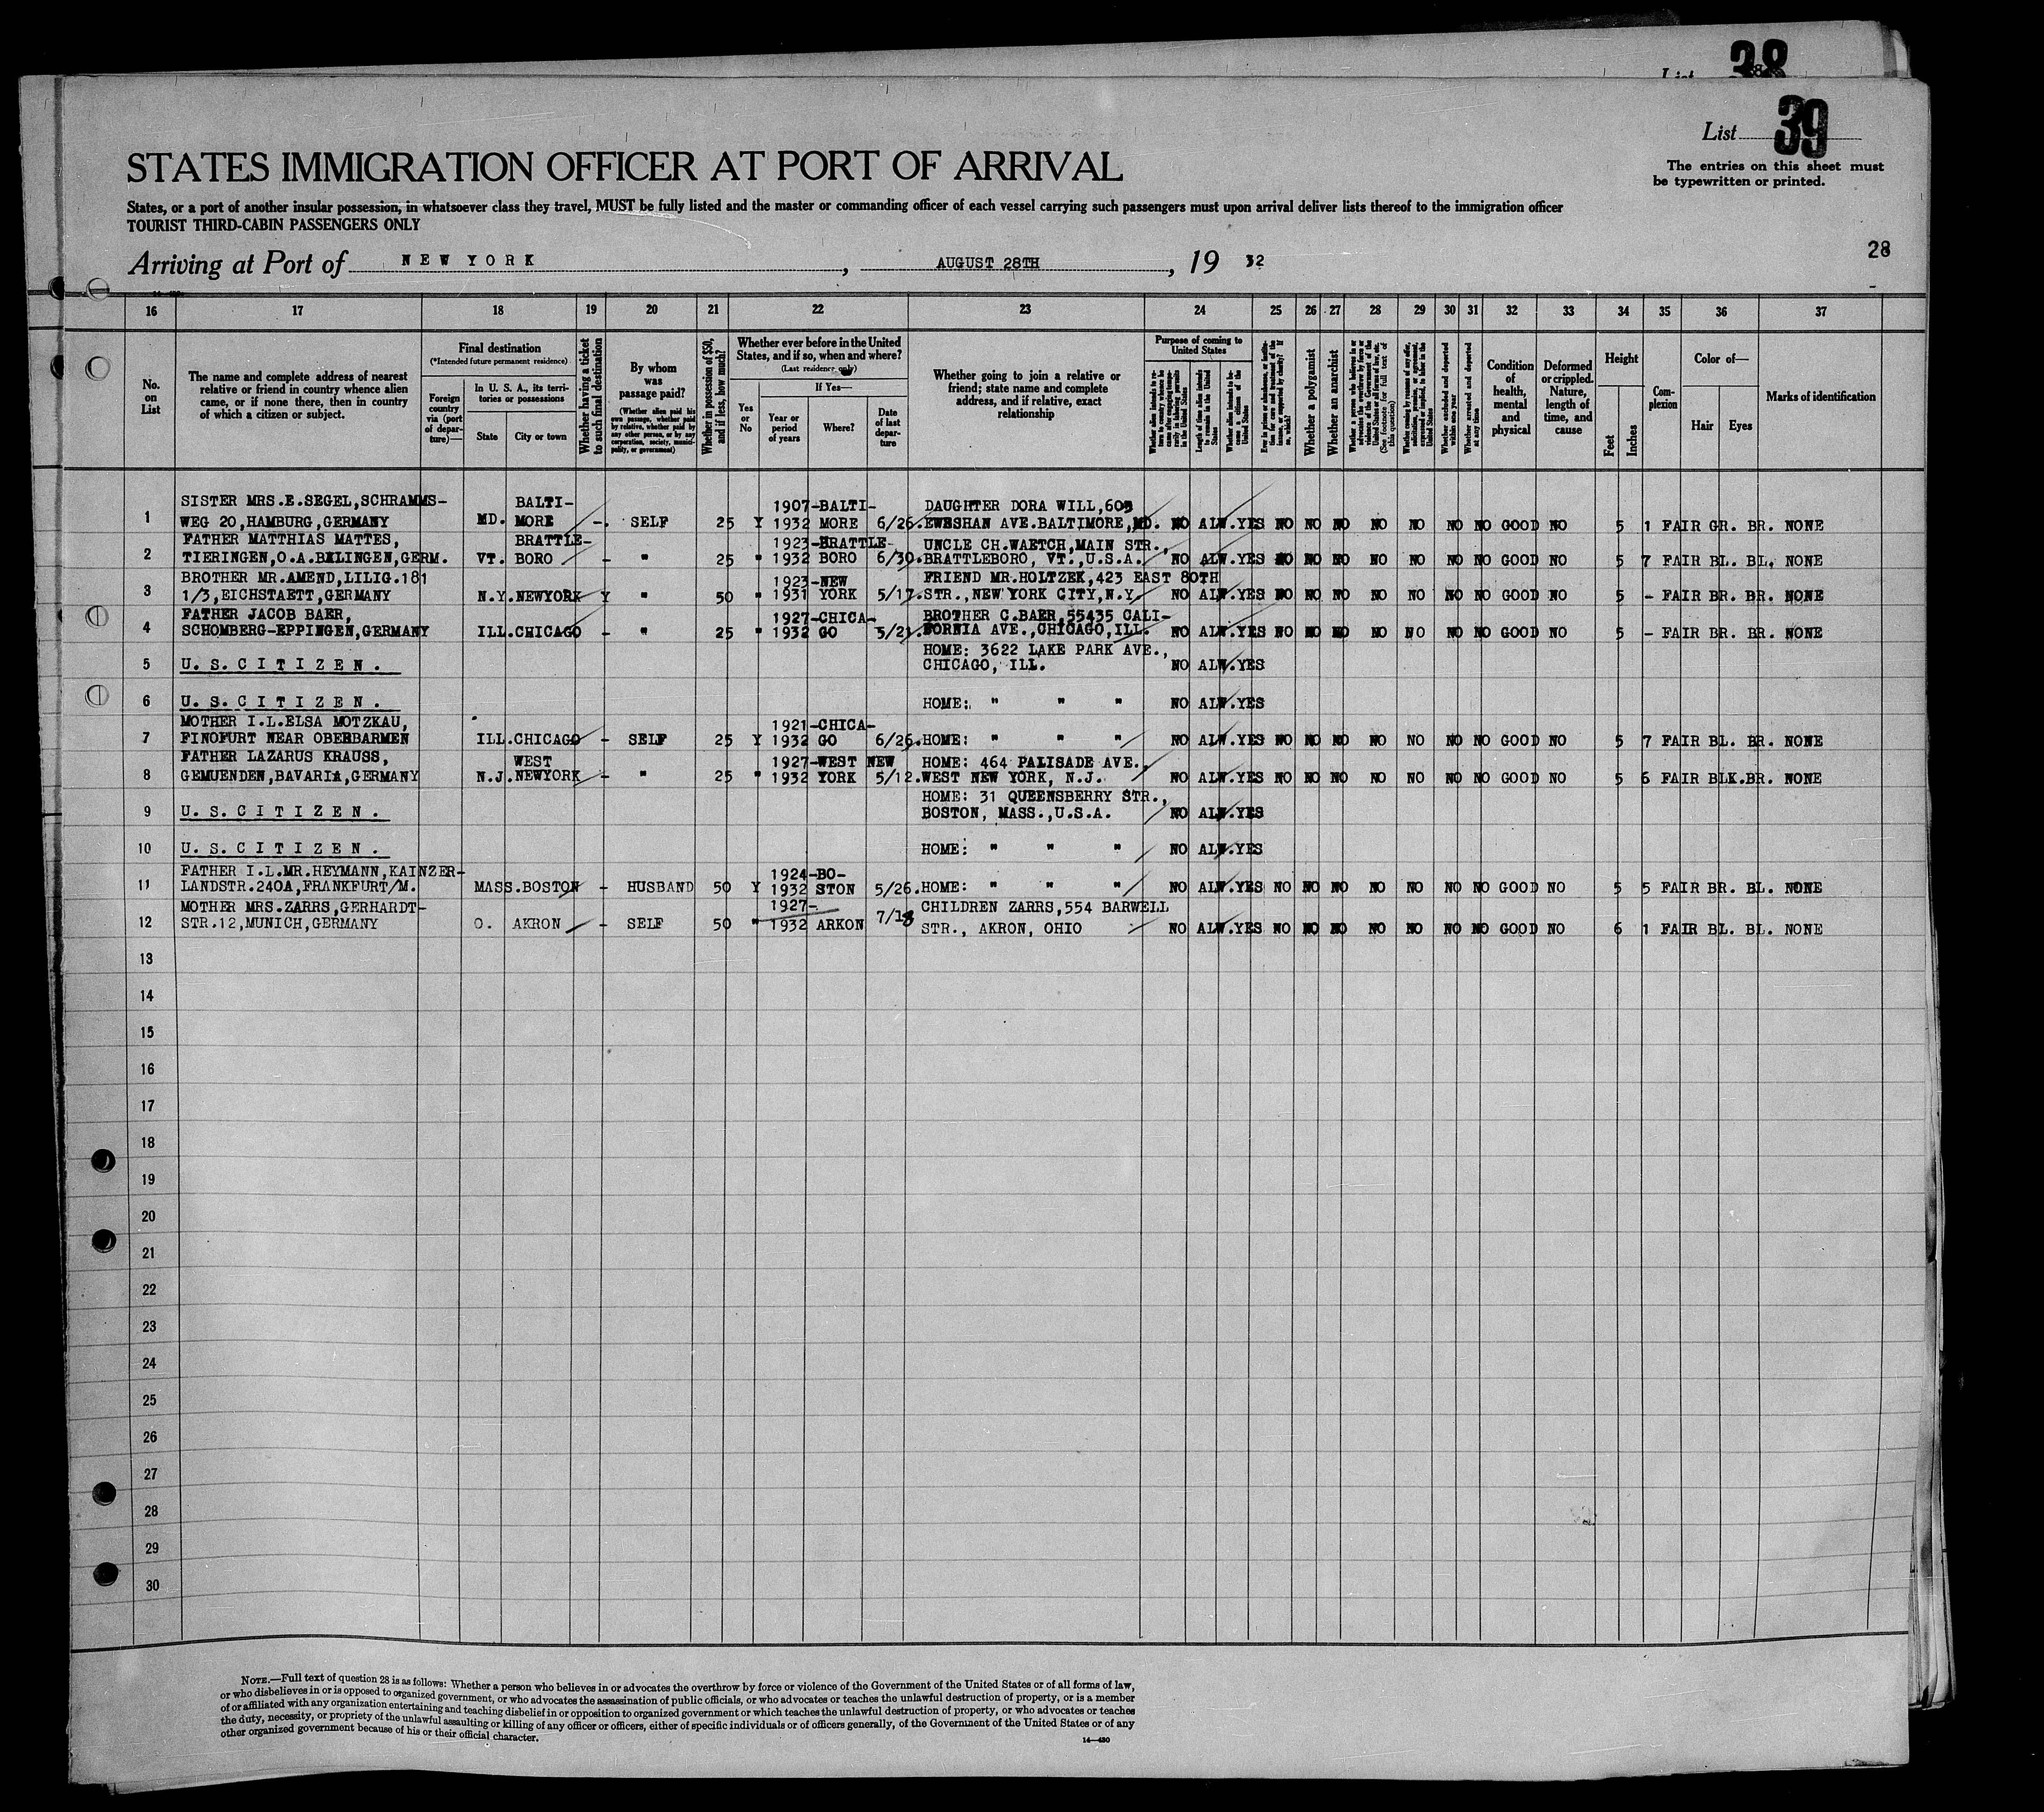 List 38
List 39
The entries on this sheet must
be typewritten or printed.
STATES IMMIGRATION OFFICER AT PORT OF ARRIVAL
States, or a port of another insular possession, in whatsoever class they travel, MUST be fully listed and the master or commanding officer of each vessel carrying such passengers must upon arrival deliver lists thereof to the immigration officer
TOURIST THIRD-CABIN PASSENGERS ONLY
28
Arriving at Port of NEW YORK, AUGUST 28TH, 19 32
16 17 18 19 20 21 22 23 24 25 26 27 28 29 30 31 32 33 34 35 36 37
No. on List
The name and complete address of nearest relative or friend in country whence alien came, or if none there, then in country of which a citizen or subject.
Final destination
(*Intended future permanent residence)
Foreign country via (port of departure)—
In U. S. A., its territories or possessions
State
City or town
Whether having a ticket to such final destination
By whom was passage paid?
(Whether alien paid his own passage, whether paid by relative, whether paid by any other person, or by any corporation, society, municipality, or government)
Whether in possession of $50, and if less, how much?
Whether ever before in the United States, and if so, when and where?
(Last residence only)
Yes or No
If Yes—
Year or period of years
Where?
Date of last departure
Whether going to join a relative or friend; state name and complete address, and if relative, exact relationship
Purpose of coming to United States
Length of time alien intends to remain in the United States
Whether alien intends to become a citizen of the United States
Whether a polygamist
Whether an anarchist
Whether excluded and deported within one year
Whether arrested and deported at any time
Condition of health, mental and physical
Deformed or crippled. Nature, length of time, and cause
Height
Feet
Inches
Complexion
Color of—
Hair
Eyes
Marks of identification
1 SISTER MRS.E.SEGEL,SCHRAMMS- BALTI- 1907-BALTI- DAUGHTER DORA WILL,609
WEG 20,HAMBURG,GERMANY MD. MORE -. SELF 25 Y 1932 MORE 6/26. AVE.BALTIMORE,MD. NO ALW.YES NO NO NO NO NO NO NO GOOD NO 5 1 FAIR GR. BR. NONE
2 FATHER MATTHIAS MATTES, BRATTLE- 1923-BRATTLE- UNCLE CH.WAETCH,MAIN STR.,
TIERINGEN,O.A.BALINGEN,GERM. VT. BORO - " 25 " 1932 BORO 6/30. BRATTLEBORO, VT.,U.S.A. NO ALW.YES NO NO NO NO NO NO NO GOOD NO 5 7 FAIR BL. BL. NONE
3 BROTHER MR.AMEND,LILIG.181 1923-NEW FRIEND MR.HOLTZEK,423 EAST 80TH
1/3,EICHSTAETT,GERMANY N.Y.NEWYORK Y " 50 " 1931 YORK 5/17. STR.,NEW YORK CITY,N.Y. NO ALW.YES NO NO NO NO NO NO NO GOOD NO 5 - FAIR BR. BR. NONE
4 FATHER JACOB BAER, 1927-CHICA- BROTHER C.BAER,55435 CALI-
SCHOMBERG-EPPINGEN,GERMANY ILL.CHICAGO - " 25 " 1932 GO 5/21. FORNIA AVE.,CHICAGO,ILL. NO ALW.YES NO NO NO NO NO NO NO GOOD NO 5 - FAIR BR. BR. NONE
HOME: 3622 LAKE PARK AVE.,
5 U.S.CITIZEN. CHICAGO, ILL. NO ALW.YES
6 U.S.CITIZEN. HOME: " " " NO ALW.YES
7 MOTHER I.L.ELSA MOTZKAU, 1921-CHICA-
FINOFURT NEAR OBERBARMEN ILL.CHICAGO - SELF 25 Y 1932 GO 6/26. HOME: " " " NO ALW.YES NO NO NO NO NO NO NO GOOD NO 5 7 FAIR BL. BR. NONE
8 FATHER LAZARUS KRAUSS, WEST 1927-WEST NEW HOME: 464 PALISADE AVE.,
GEMUENDEN,BAVARIA,GERMANY N.J.NEWYORK - " 25 " 1932 YORK 5/12. WEST NEW YORK, N.J. NO ALW.YES NO NO NO NO NO NO NO GOOD NO 5 6 FAIR BLK.BR. NONE
HOME: 31 QUEENSBERRY STR.,
9 U.S.CITIZEN. BOSTON, MASS.,U.S.A. NO ALW.YES
10 U.S.CITIZEN. HOME: " " " NO ALW.YES
11 FATHER I.L.MR.HEYMANN,KAINZER- 1924-BO-
LANDSTR.240A,FRANKFURT/M. MASS.BOSTON - HUSBAND 50 Y 1932 STON 5/26. HOME: " " " NO ALW.YES NO NO NO NO NO NO NO GOOD NO 5 5 FAIR BR. BL. NONE
12 MOTHER MRS.ZARRS,GERHARDT- 1927- CHILDREN ZARRS,554 BARWELL
STR.12,MUNICH,GERMANY O. AKRON - SELF 50 " 1932 ARKON 7/18 STR., AKRON, OHIO NO ALW.YES NO NO NO NO NO NO NO GOOD NO 6 1 FAIR BL. BL. NONE
13
14
15
16
17
18
19
20
21
22
23
24
25
26
27
28
29
30
NOTE.—Full text of question 28 is as follows: Whether a person who believes in or advocates the overthrow by force or violence of the Government of the United States or of all forms of law,
or who disbelieves in or is opposed to organized government, or who advocates the assassination of public officials, or who advocates or teaches the unlawful destruction of property, or is a member
of or affiliated with any organization entertaining and teaching disbelief in or opposition to organized government or which teaches the unlawful destruction of property, or who advocates or teaches
the duty, necessity, or propriety of the unlawful assaulting or killing of any officer or officers, either of specific individuals or of officers generally, of the Government of the United States or of any
other organized government because of his or their official character.
14—430